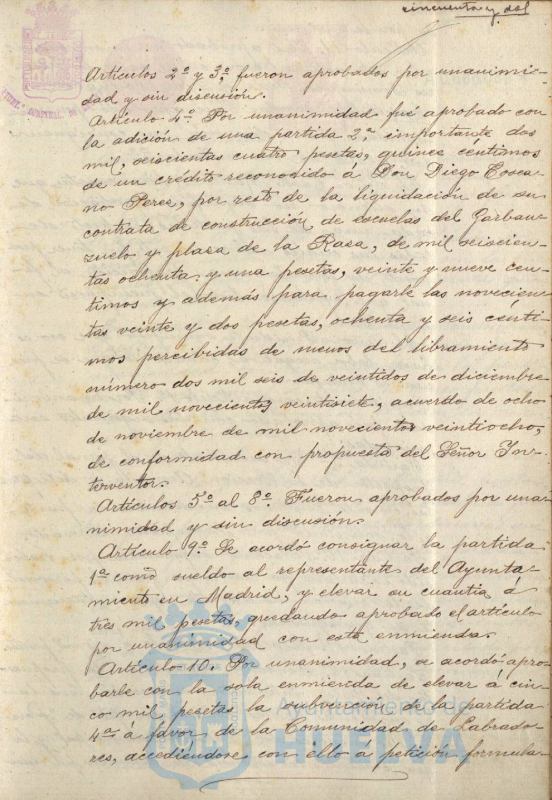 cincuenta y dos
Artículos 2º y 3º, fueron aprobados por unanimi-
dad y sin discusión.
Artículo 4º. Por unanimidad fué aprobado con
la adición de una partida 2ª importante dos
mil, seiscientas cuatro pesetas, quince céntimos
de un crédito reconocido á Don Diego Tosca-
no Peres, por resto de la liquidación de su
contrata de construcción de escuelas del Garban-
zuelo y plaza de la Rasa, de mil seiscien-
tas ochenta y una pesetas, veinte y nueve cen-
timos y además para pagarle las novecien-
tas veinte y dos pesetas, ochenta y seis cénti-
mos percibidas de menos del libramiento
número dos mil seis de veintidos de diciembre
de mil novecientos veintisiete, acuerdo de ocho
de noviembre de mil novecientos veintiocho,
de conformidad con propuesta del Señor In-
terventor.
Artículos 5º al 8º. Fueron aprobados por una-
nimidad y sin discusión.
Artículo 9º. Se acordó consignar la partida
1ª como sueldo al representante del Ayunta-
miento en Madrid, y elevar su cuantía á
tres mil pesetas, quedando aprobado el artículo
por unanimidad con esta enmienda.
Artículo 10. Por unanimidad, se acordó apro-
barle con la sola enmienda de elevar á cin-
co mil pesetas la subvención de la partida
4ª á favor de la Comunidad de Labrado-
res, accediéndose con ello á petición formula-
Ayuntamiento de
HUELVA